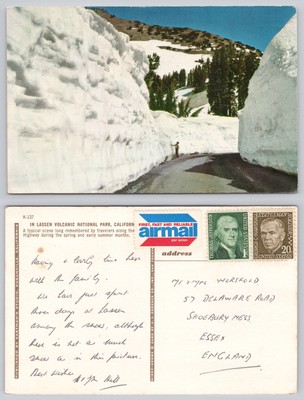 K-137
IN LASSEN VOLCANIC NATIONAL PARK, CALIFORNIA
A typical scene long remembered by travelers along the
Highway during the spring and early summer months.
FAST, AND RELIABLE
airmail
address
Having a lovely time here
with the family.
We have just spent
three days at Lassen
among the snow, although
there is not as much
snow as in this picture.
Best wishes
UNITED STATES
1c
GEORGE C. MARSHALL
20c
57 DELAWARE ROAD
SHOEBURY NESS
ESSEX
ENGLAND